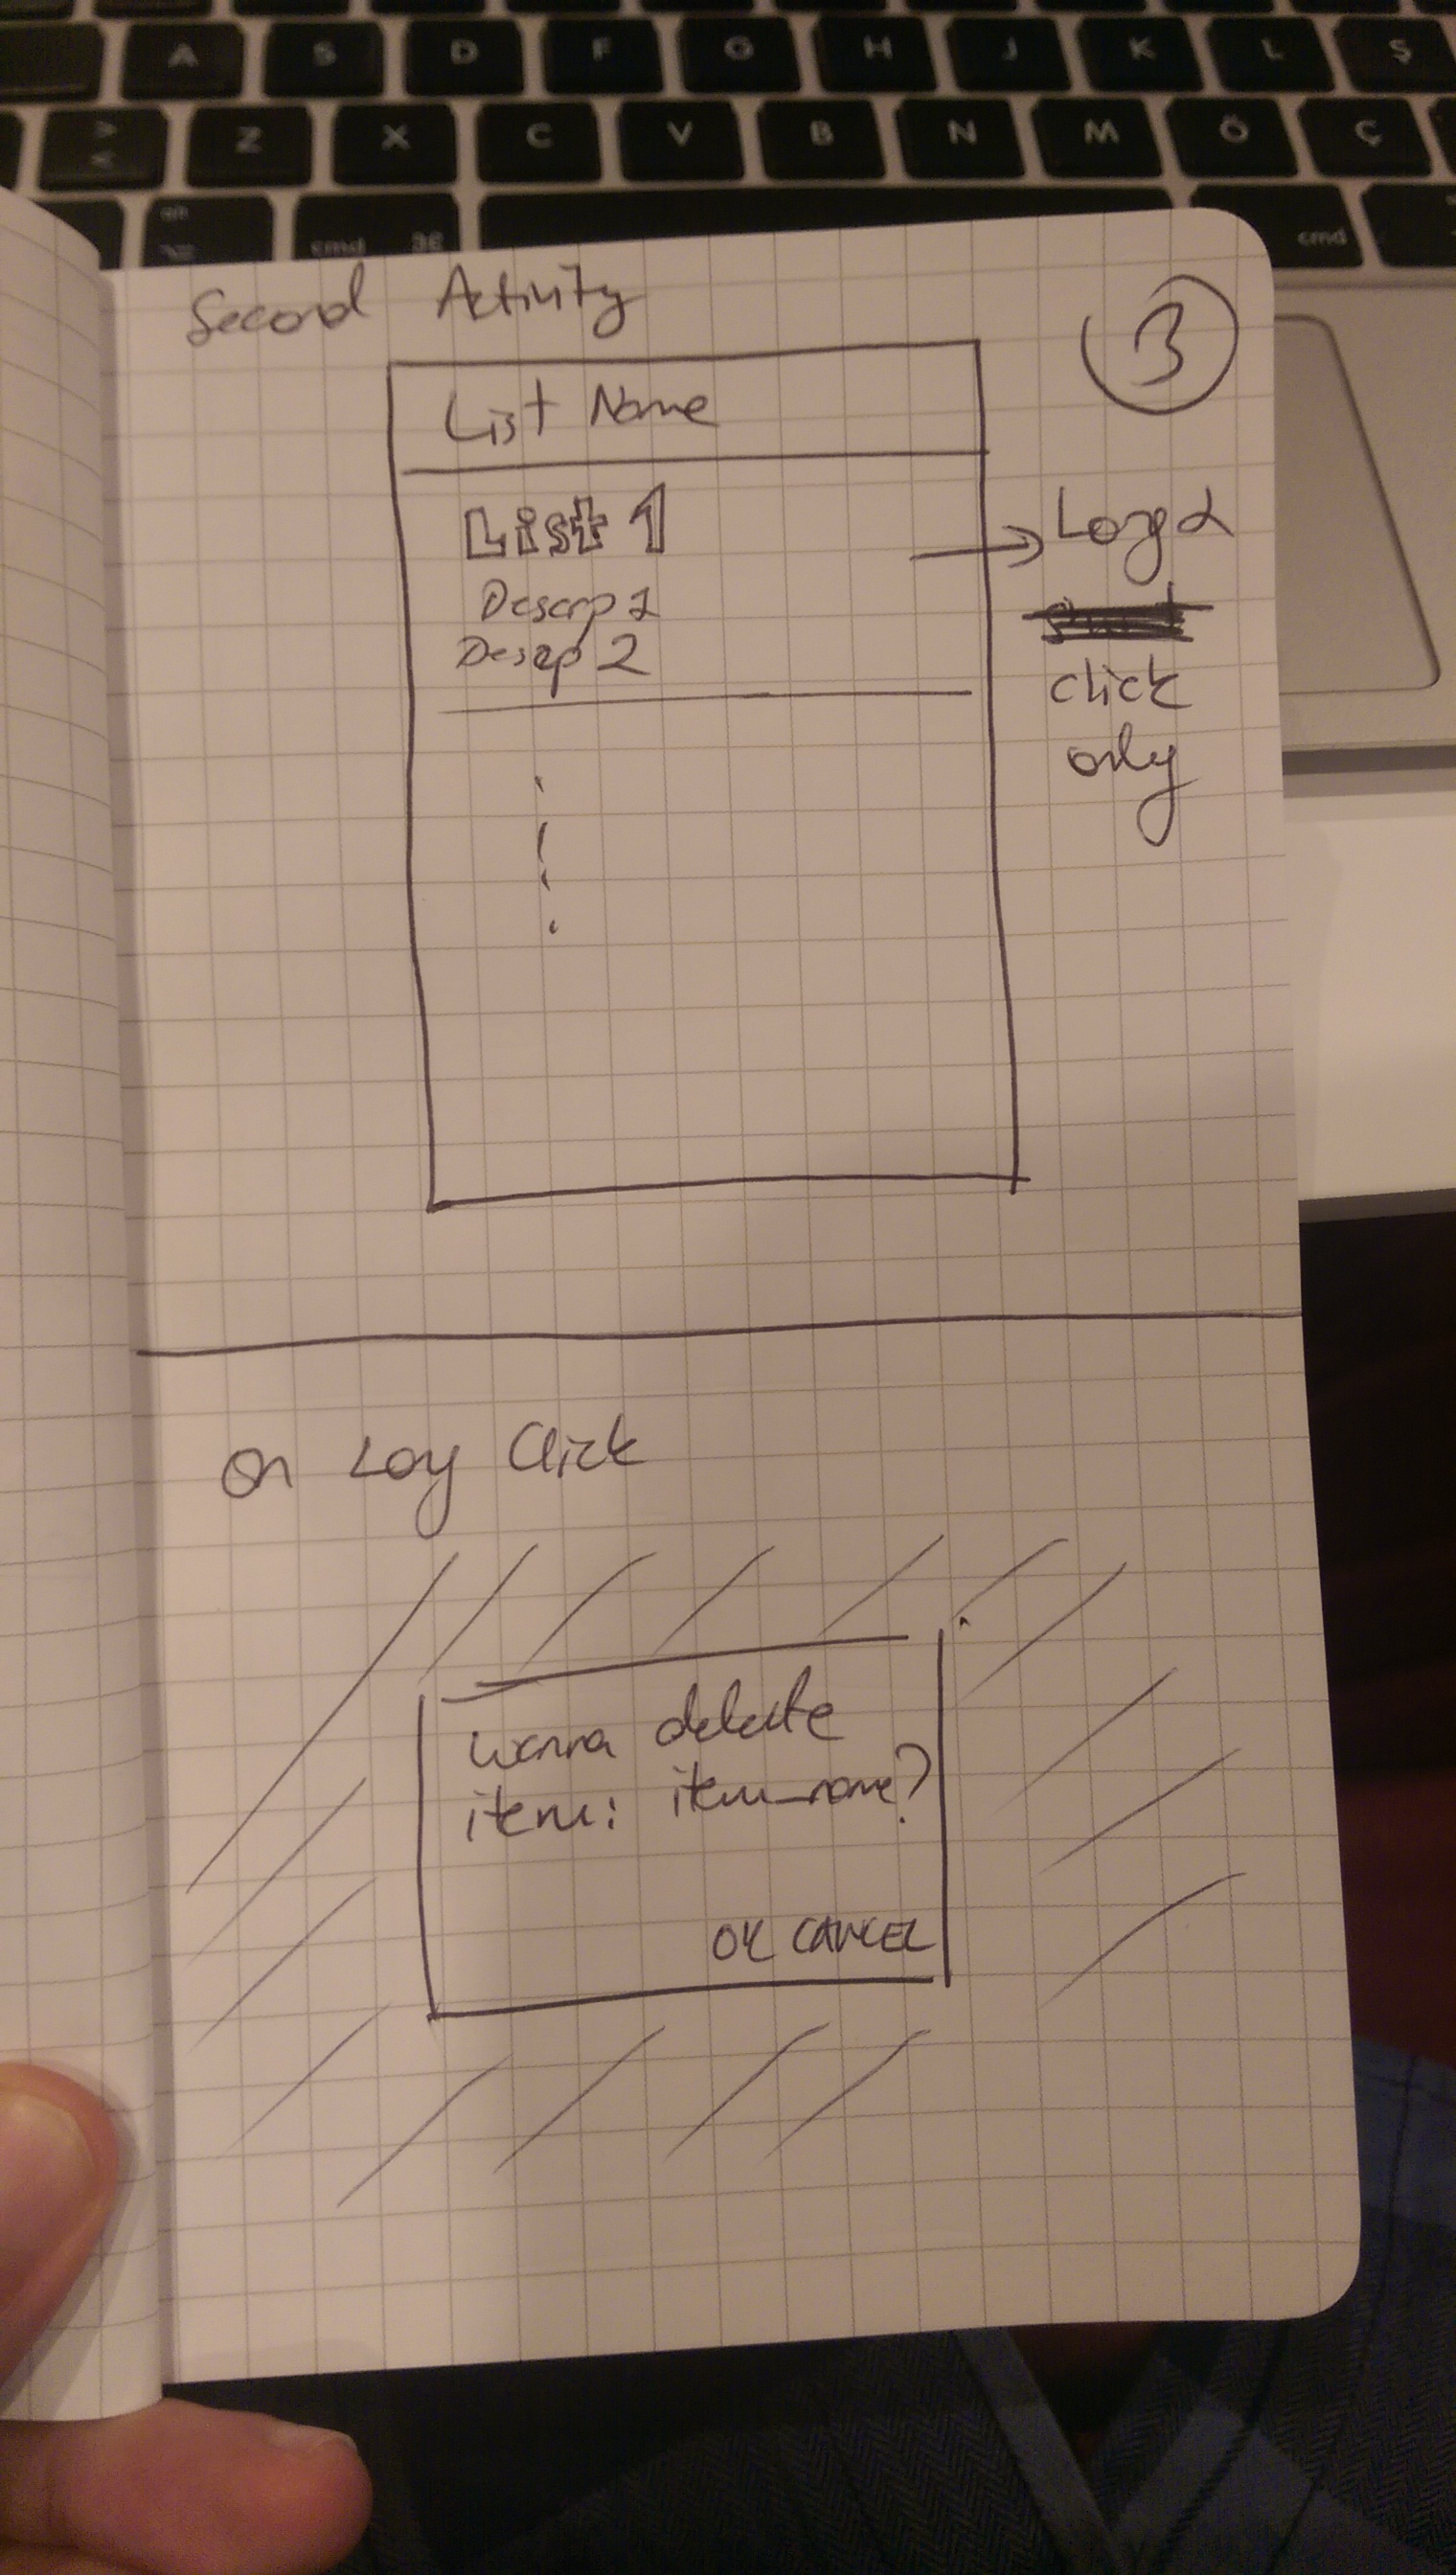 A S D F G H J K L Ş
> Z X C V B N M Ö Ç
<
alt
⌥ cmd ⌘ cmd
Second Activity
3
List Name
List 1
Descrp 1
Descrp 2
click
only
On Long Click
wanna delete
item: item_name?
OK CANCEL